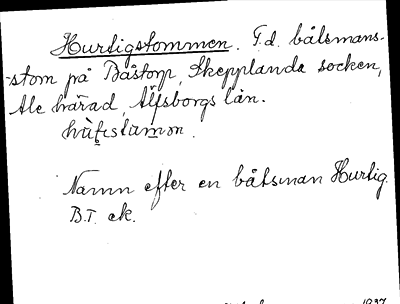 Hurtigstommen. F.d. båtsmans-
-stom på Båstorp, Skepplanda socken,
Ale härad, Älfsborgs län.
Namn efter en båtsman Hurtig.
B.T. ek.
1937